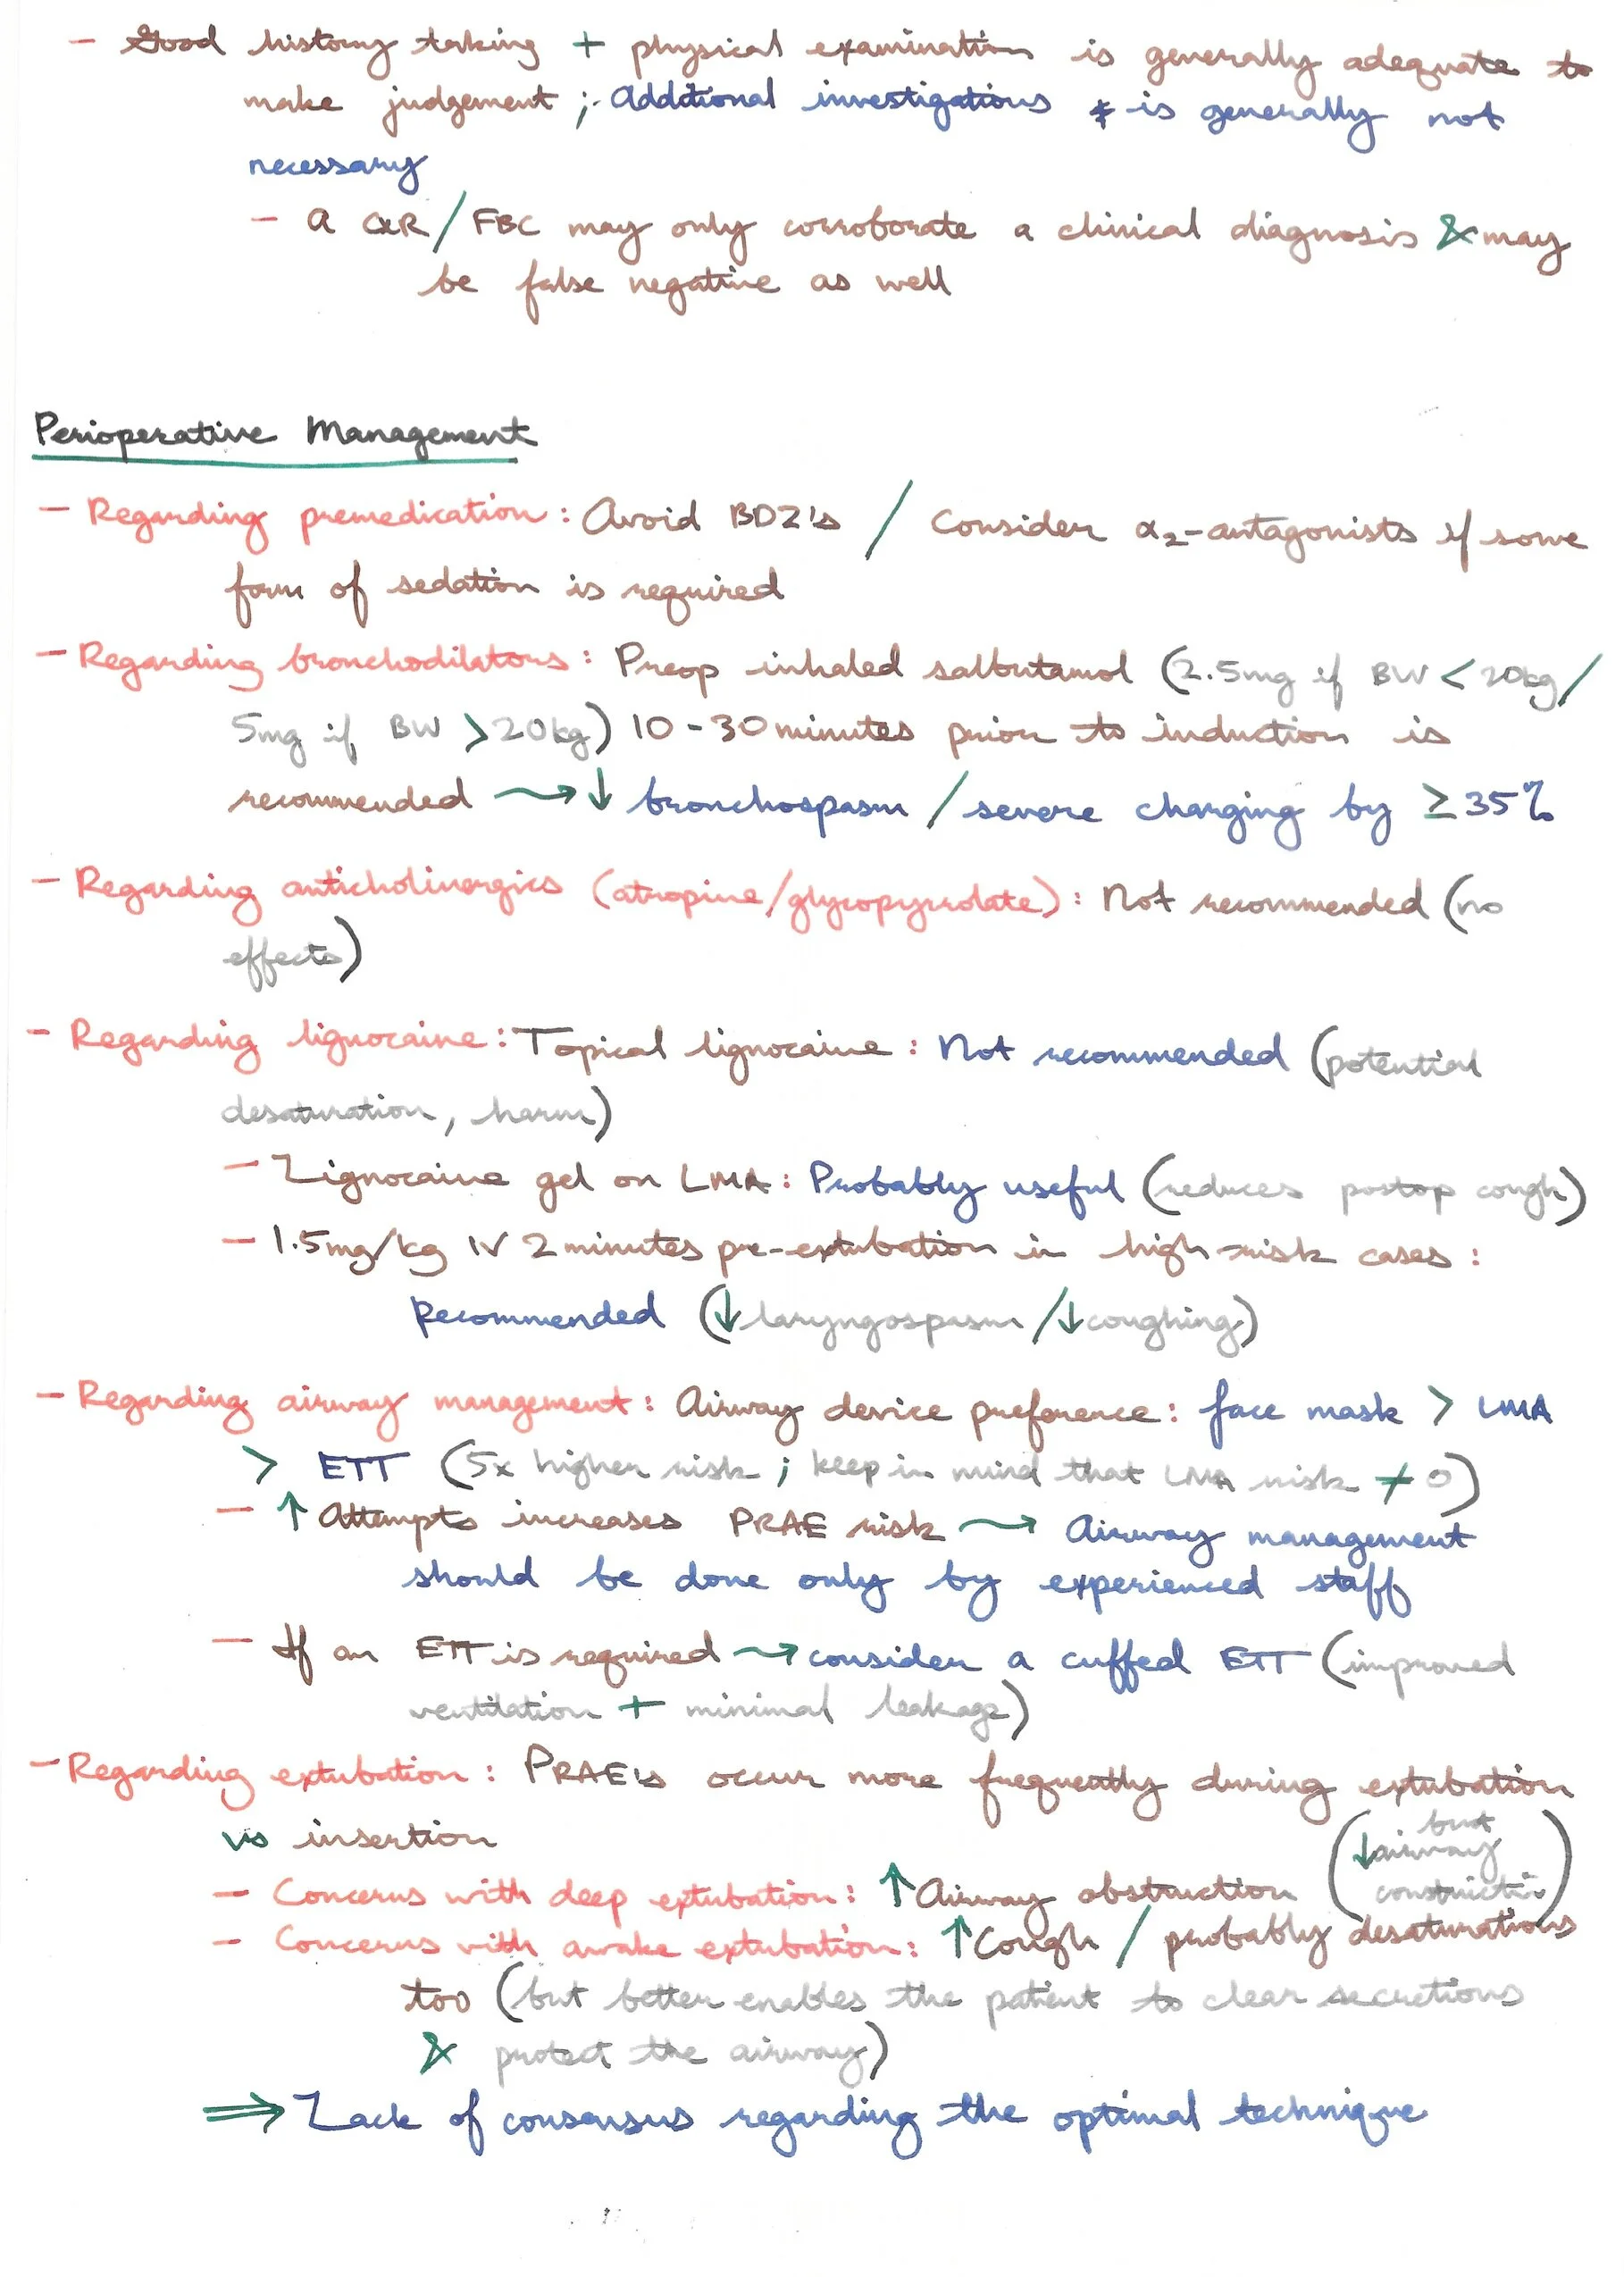 - Good history taking + physical examination is generally adequate to
make judgement ; Additional investigations is generally not
necessary
- A CXR / FBC may only corroborate a clinical diagnosis & may
be false negative as well
Perioperative Management
- Regarding premedication : Avoid BDZ's / Consider α₂-antagonists if some
form of sedation is required
- Regarding bronchodilators : Preop inhaled salbutamol (2.5mg if BW < 20kg /
5mg if BW > 20kg) 10 - 30 minutes prior to induction is
recommended → ↓ bronchospasm / severe charging by ≥ 35%
- Regarding anticholinergics (atropine/glycopyrrolate) : Not recommended (no
effects)
- Regarding lignocaine : Topical lignocaine : Not recommended (potential
desaturation, harm)
- Lignocaine gel on LMA : Probably useful (reduces postop cough)
- 1.5mg/kg IV 2 minutes pre-extubation in high-risk cases :
Recommended (↓ laryngospasm / ↓ coughing)
- Regarding airway management : Airway device preference : face mask > LMA
> ETT (5x higher risk ; keep in mind that LMA risk ≠ 0)
- ↑ Attempts increases PRAE risk → Airway management
should be done only by experienced staff
- If an ETT is required → consider a cuffed ETT (improved
ventilation + minimal leakage)
- Regarding extubation : PRAE's occur more frequently during extubation
vs insertion
- Concerns with deep extubation : ↑ Airway obstruction (but
↓ airway
constriction)
- Concerns with awake extubation : ↑ Cough / probably desaturations
too (but better enables the patient to clear secretions
& protect the airway)
⇒ Lack of consensus regarding the optimal technique